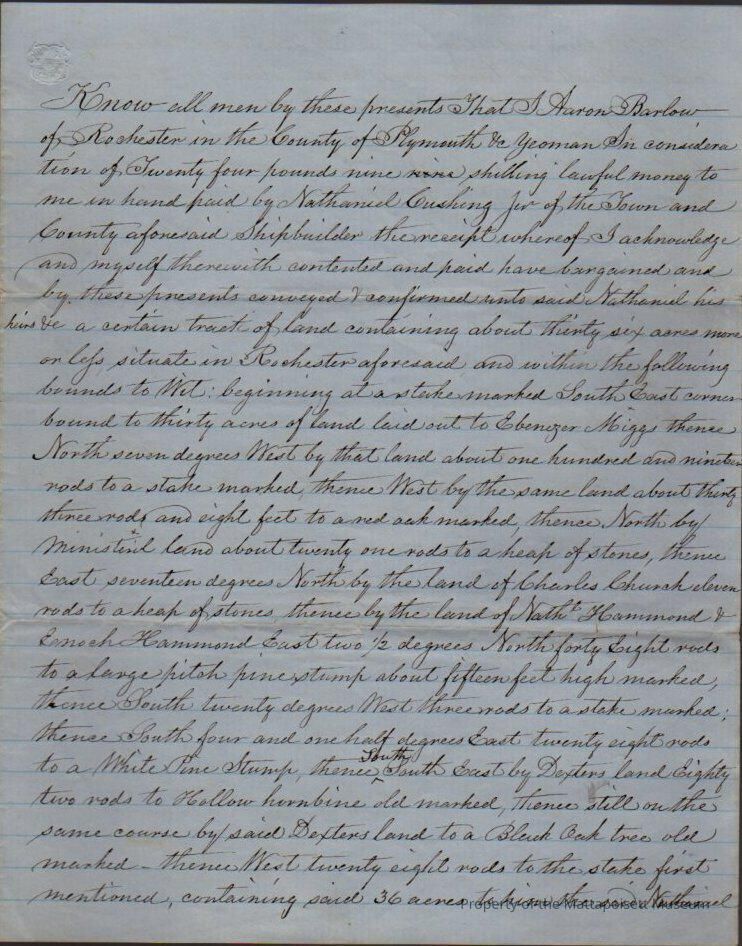 Know all men by these presents That I Aaron Barlow
of Rochester in the County of Plymouth &c Yeoman In considera
tion of Twenty four pounds nine nine shilling lawful money to
me in hand paid by Nathaniel Cushing Jur of the Town and
County aforesaid Shipbuilder the receipt whereof I acknowledge
and myself therewith contented and paid have bargained and
by these presents conveyed & confirmed unto said Nathaniel his
heirs &c a certain tract of land containing about thirty six acres more
or less situate in Rochester aforesaid and within the following
bounds to Wit: beginning at a stake marked South East corner
bound to thirty acres of land laid out to Ebenezer Miggs thence
North seven degrees West by that land about one hundred and nineteen
rods to a stake marked, thence West by the same land about thirty
three rods and eight feet to a red oak marked, thence North by
land about twenty one rods to a heap of stones, thence
East seventeen degrees North by the land of Charles Church eleven
rods to a heap of stones thence by the land of Nathl Hammond &
Enoch Hammond East two 1/2 degrees North forty Eight rods
to a large pitch pine stump about fifteen feet high marked,
thence South twenty degrees West three rods to a stake marked;
thence South four and one half degrees East twenty eight rods
to a White Pine Stump, thence South South East by Dexters land Eighty
two rods to Hollow hornbine old marked, thence still on the
same course by said Dexters land to a Black Oak tree old
marked - thence West twenty eight rods to the stake first
mentioned, containing said 36 acres to him the said Nathaniel
Property of the Mattapoisett Museum